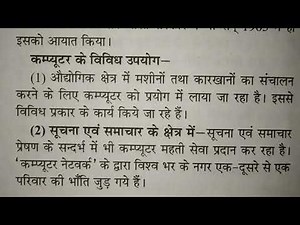 इसको आयात किया।
कम्प्यूटर के विविध उपयोग—
(1) औद्योगिक क्षेत्र में मशीनों तथा कारखानों का संचालन
करने के लिए कम्प्यूटर को प्रयोग में लाया जा रहा है। इससे
विविध प्रकार के कार्य किये जा रहे हैं।
(2) सूचना एवं समाचार के क्षेत्र में—सूचना एवं समाचार
प्रेषण के सन्दर्भ में भी कम्प्यूटर महती सेवा प्रदान कर रहा है।
'कम्प्यूटर नेटवर्क' के द्वारा विश्व भर के नगर एक-दूसरे से एक
परिवार की भाँति जुड़ गये हैं।